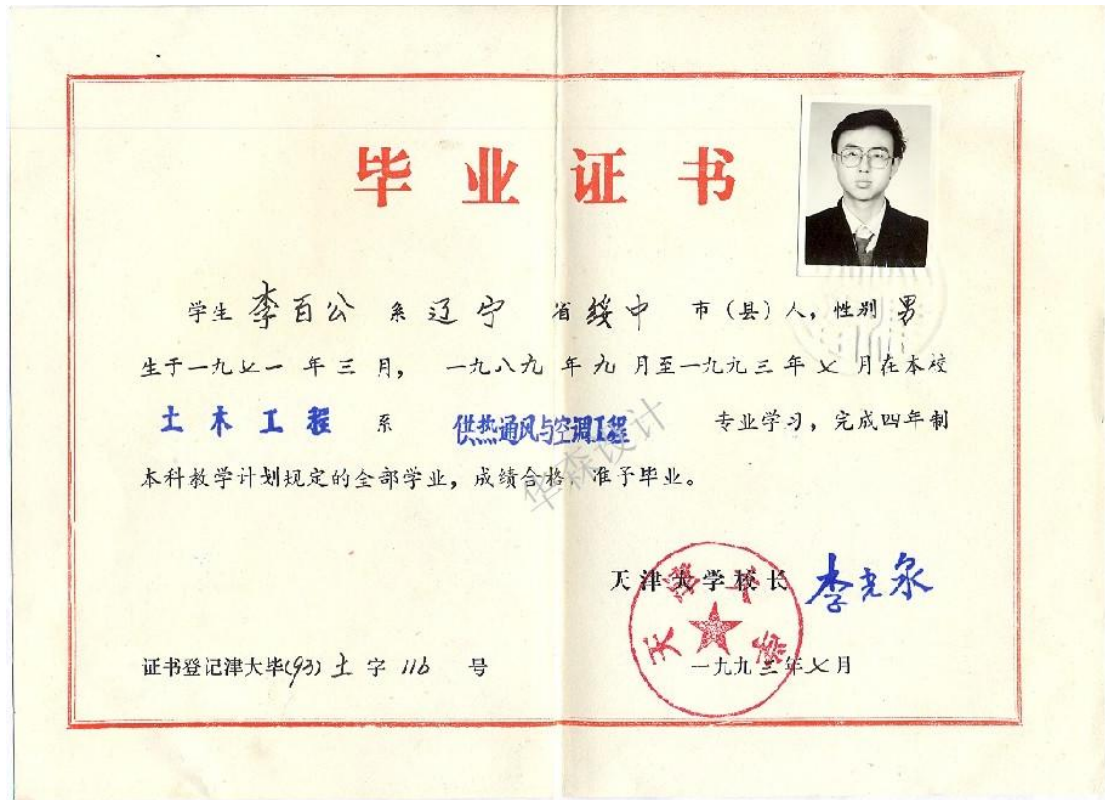 毕业证书
学生 李百公 系 辽宁 省 绥中 市（县）人，性别 男
生于一九七一年三月，一九八九年九月至一九九三年七月在本校
土木工程 系 供热通风与空调工程 专业学习，完成四年制
本科教学计划规定的全部学业，成绩合格，准予毕业。
华森设计
天津大学校长 李光泉
天津大学
证书登记津大毕(93)土字116号
一九九三年七月